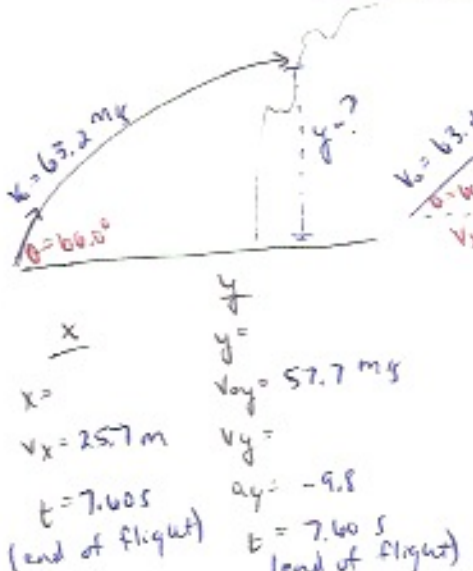 v₀ = 63.2 m/s
θ = 66.0°
y = ?
v₀ = 63.
θ = 6
Vx
x
x =
vx = 25.7 m
t = 7.60 s
(end of flight)
y
y =
voy = 57.7 m/s
vy =
ay = -9.8
t = 7.60 s
(end of flight)